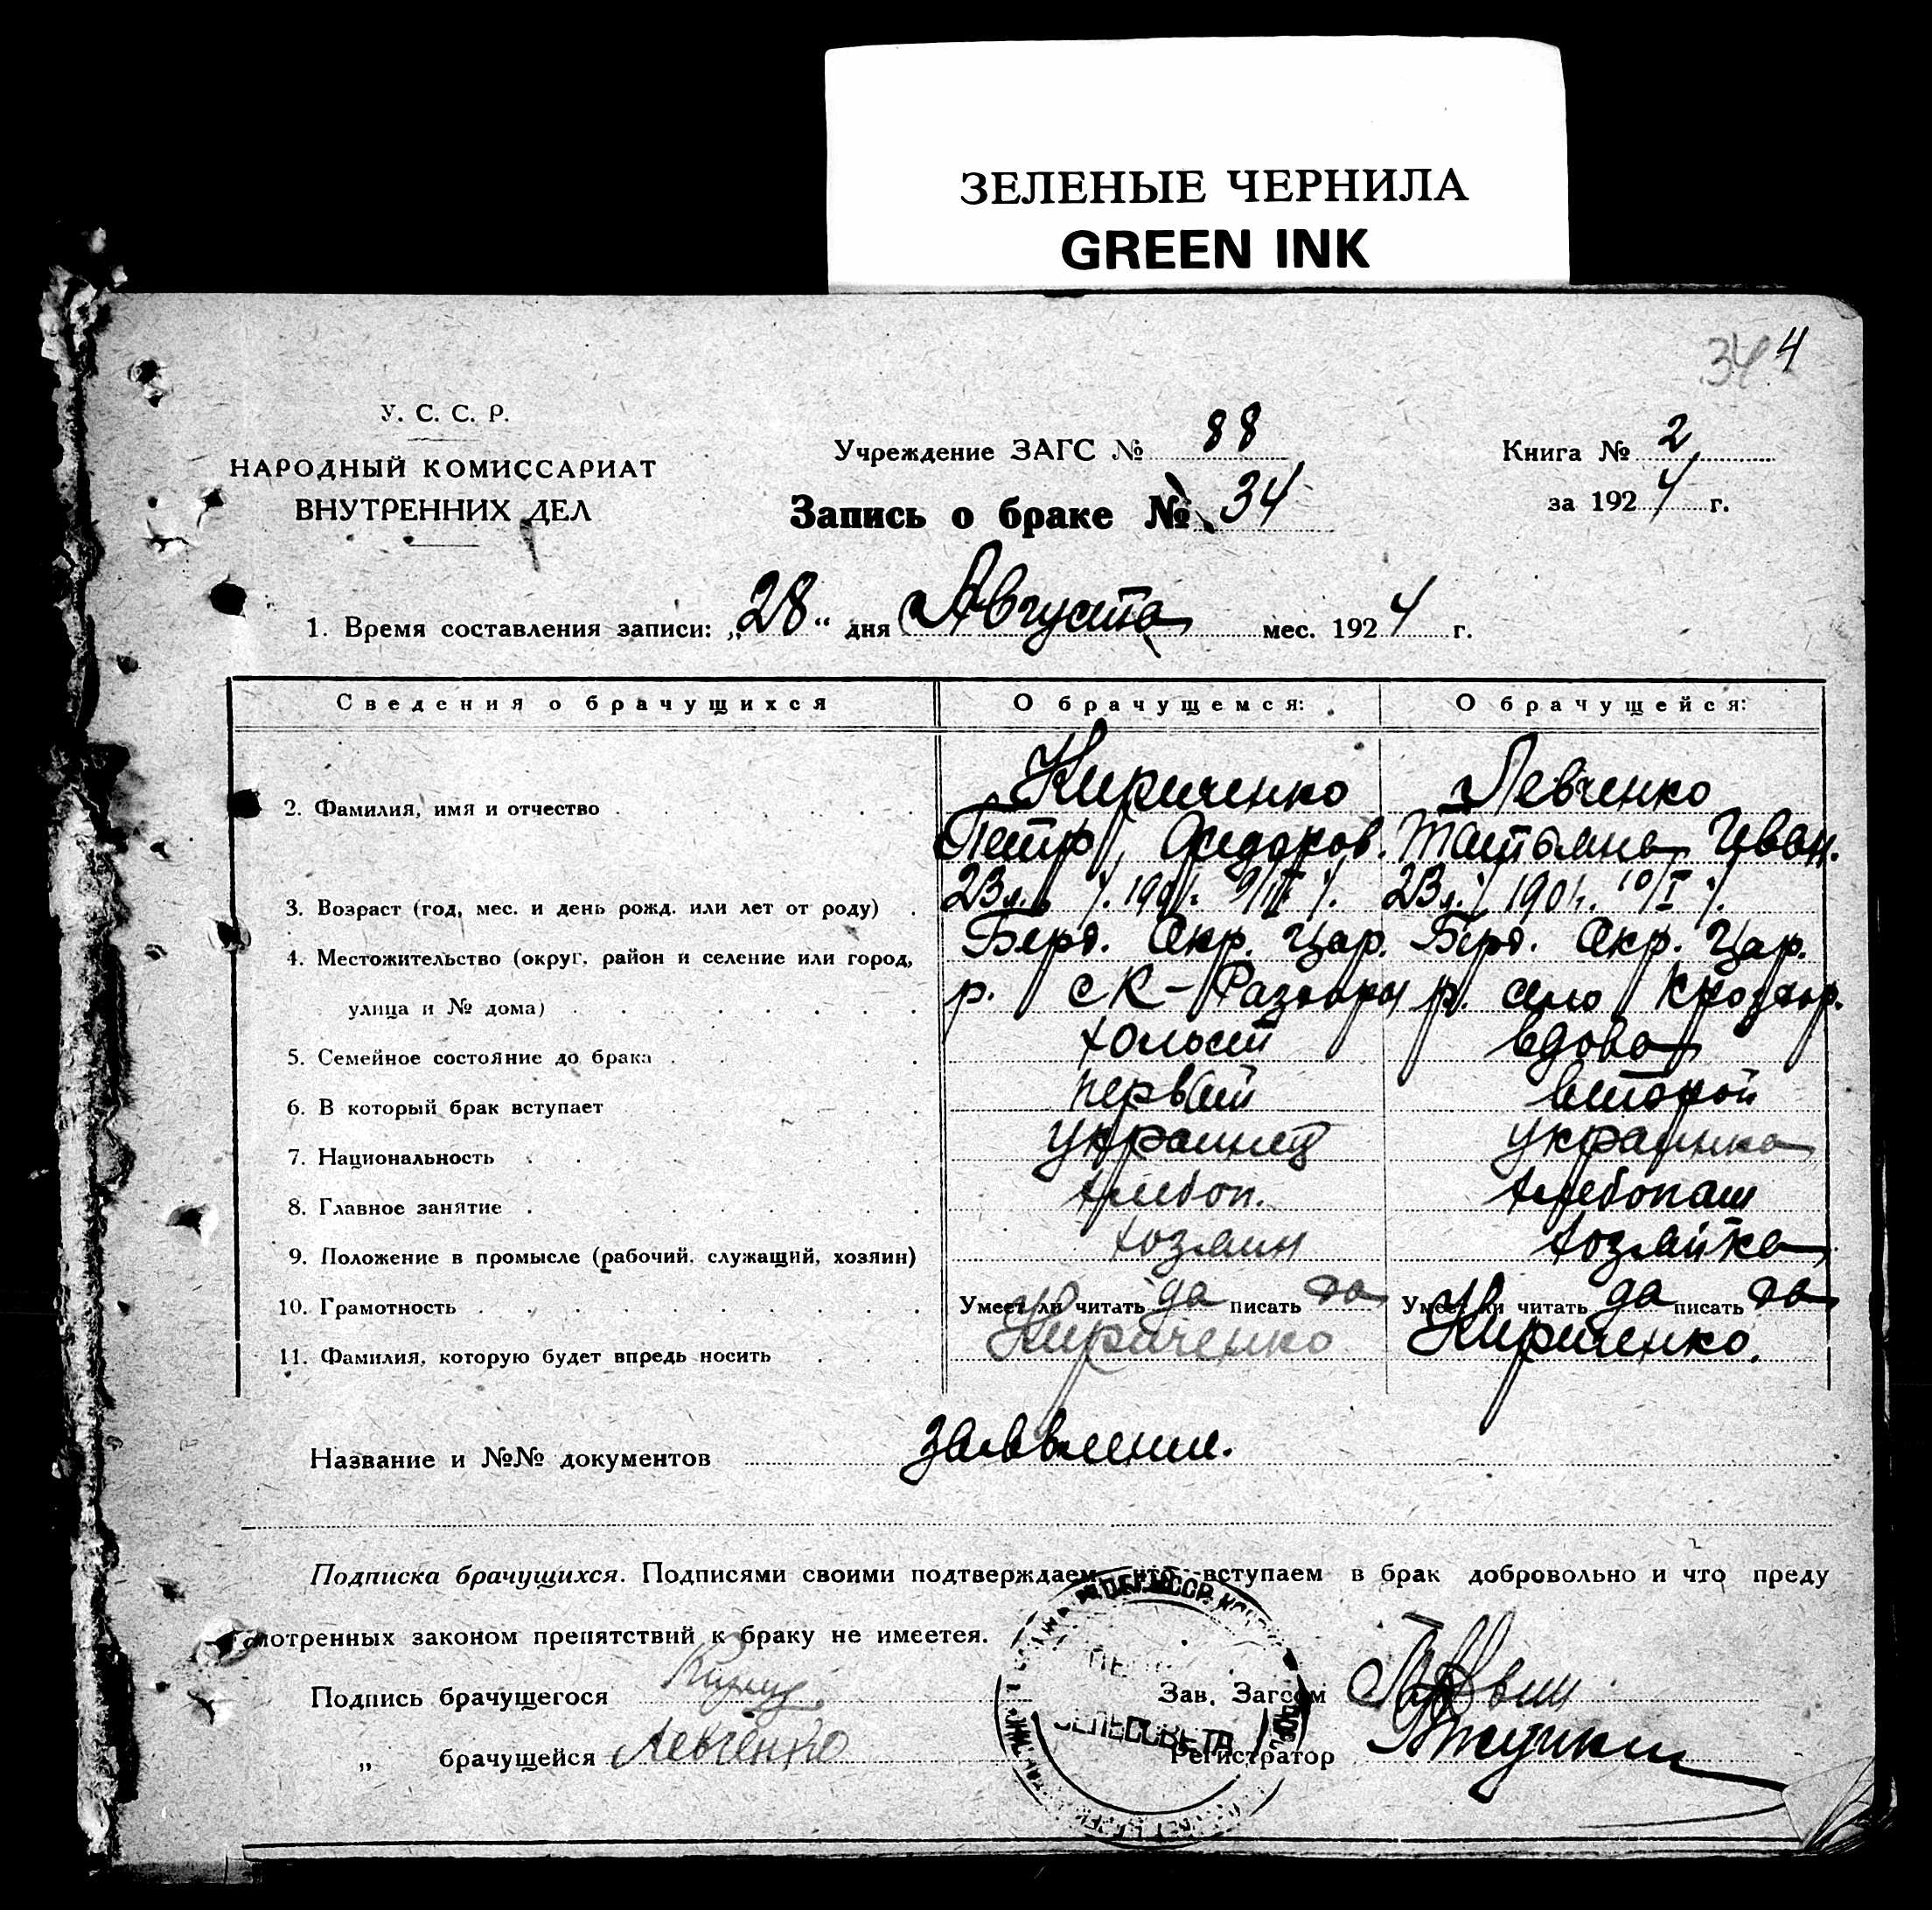 ЗЕЛЕНЫЕ ЧЕРНИЛА
GREEN INK
34 4
У. С. С. Р.
НАРОДНЫЙ КОМИССАРИАТ
ВНУТРЕННИХ ДЕЛ
Учреждение ЗАГС № 88
Запись о браке № 34
Книга № 2
за 1924 г.
1. Время составления записи: „28“ дня Августа мес. 1924 г.
Сведения о брачущихся О брачущемся: О брачущейся:
Кириченко Левченко
2. Фамилия, имя и отчество
Петр Сидоров. Татьяна Иван.
3. Возраст (год, мес. и день рожд. или лет от роду) 23 1901 23 1901 10/I
4. Местожительство (округ, район и селение или город, Берд. Окр. Цар. Берд. Окр. Цар.
улица и № дома) р. р. село
5. Семейное состояние до брака холост вдова
6. В который брак вступает первый второй
7. Национальность украинец украинка
8. Главное занятие хлебоп. хлебопаш
9. Положение в промысле (рабочий, служащий, хозяин) хозяин хозяйка
10. Грамотность Умеет ли читать да писать да Умеет ли читать да писать да
11. Фамилия, которую будет впредь носить Кириченко Кириченко.
Название и №№ документов заявление.
Подписка брачущихся. Подписями своими подтверждаем, что вступаем в брак добровольно и что преду
мотренных законом препятствий к браку не имеетея.
Подпись брачущегося
Зав. Загсом
СЕЛЬСОВЕТА
„ брачущейся Левченко
Регистратор